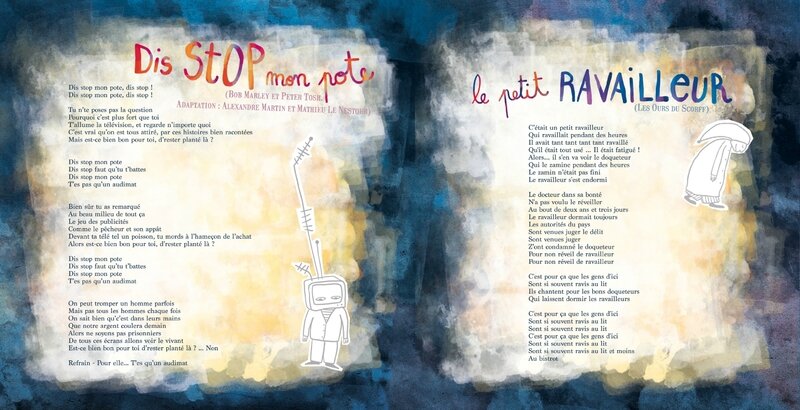 Dis STOP mon pote
(Bob Marley et Peter Tosh.
Adaptation : Alexandre Martin et Mathieu Le Nestour)
Dis stop mon pote, dis stop !
Dis stop mon pote, dis stop !
Tu n'te poses pas la question
Pourquoi c'est plus fort que toi
T'allume la télévision, et regarde n'importe quoi
C'est vrai qu'on est tous attiré, par ces histoires bien racontées
Mais est-ce bien bon pour toi, d'rester planté là ?
Dis stop mon pote
Dis stop faut qu'tu t'battes
Dis stop mon pote
T'es pas qu'un audimat
Bien sûr tu as remarqué
Au beau milieu de tout ça
Le jeu des publicités
Comme le pêcheur et son appât
Devant ta télé tel un poisson, tu mords à l'hameçon de l'achat
Alors est-ce bien bon pour toi, d'rester planté là ?
Dis stop mon pote
Dis stop faut qu'tu t'battes
Dis stop mon pote
T'es pas qu'un audimat
On peut tromper un homme parfois
Mais pas tous les hommes chaque fois
On sait bien qu'c'est dans leurs mains
Que notre argent coulera demain
Alors ne soyons pas prisonniers
De tous ces écrans allons voir le vivant
Est-ce bien bon pour toi d'rester planté là ? ... Non
Refrain - Pour elle... T'es qu'un audimat
le petit RAVAILLEUR
(Les Ours du Scorff)
C'était un petit ravailleur
Qui ravaillait pendant des heures
Il avait tant tant tant tant ravaillé
Qu'il était tout usé ... Il était fatigué !
Alors... il s'en va voir le doqueteur
Qui le zamine pendant des heures
Le zamin n'était pas fini
Le ravailleur s'est endormi
Le docteur dans sa bonté
N'a pas voulu le réveiller
Au bout de deux ans et trois jours
Le ravailleur dormait toujours
Les autorités du pays
Sont venues juger le délit
Sont venues juger
Z'ont condamné le doqueteur
Pour non réveil de ravailleur
Pour non réveil de ravailleur
C'est pour ça que les gens d'ici
Sont si souvent ravis au lit
Ils chantent pour les bons doqueteurs
Qui laissent dormir les ravailleurs
C'est pour ça que les gens d'ici
Sont si souvent ravis au lit
Sont si souvent ravis au lit
C'est pour ça que les gens d'ici
Sont si souvent ravis au lit
Sont si souvent ravis au lit et moins
Au bistrot